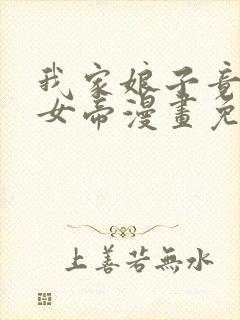 我家娘子竟
女帝漫畫免
上善若無水